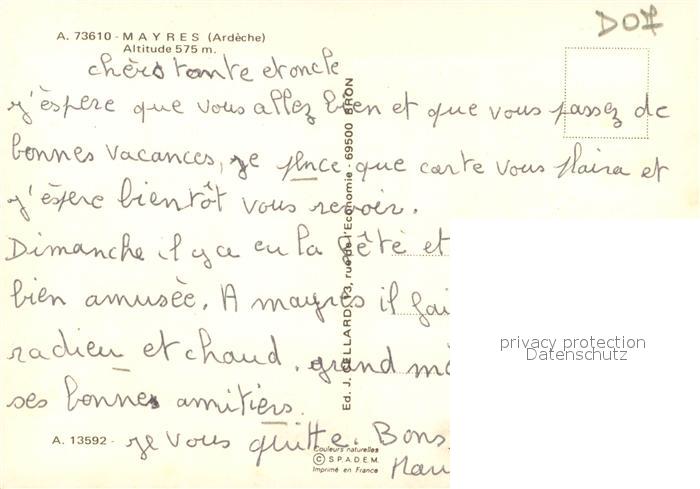 DOF
A. 73610 - MAYRES (Ardèche)
Altitude 575 m.
chers tante et oncle
j'éspere que vous allez bien et que vous passez de
bonnes vacances, je pence que carte vous plaira et
j'éspère bientôt vous revoir.
Dimanche il y a eu la fête et
bien amusée. A mayres il fai
radieu et chaud. grand mè
ses bonnes amitiers.
je vous quitte. Bons
A. 13592 -
Ed. J. CELLARD, 13, rue de l'Economie - 69500 BRON
Couleurs naturelles
© S.P.A.D.E.M.
Imprimé en France
privacy protection
Datenschutz